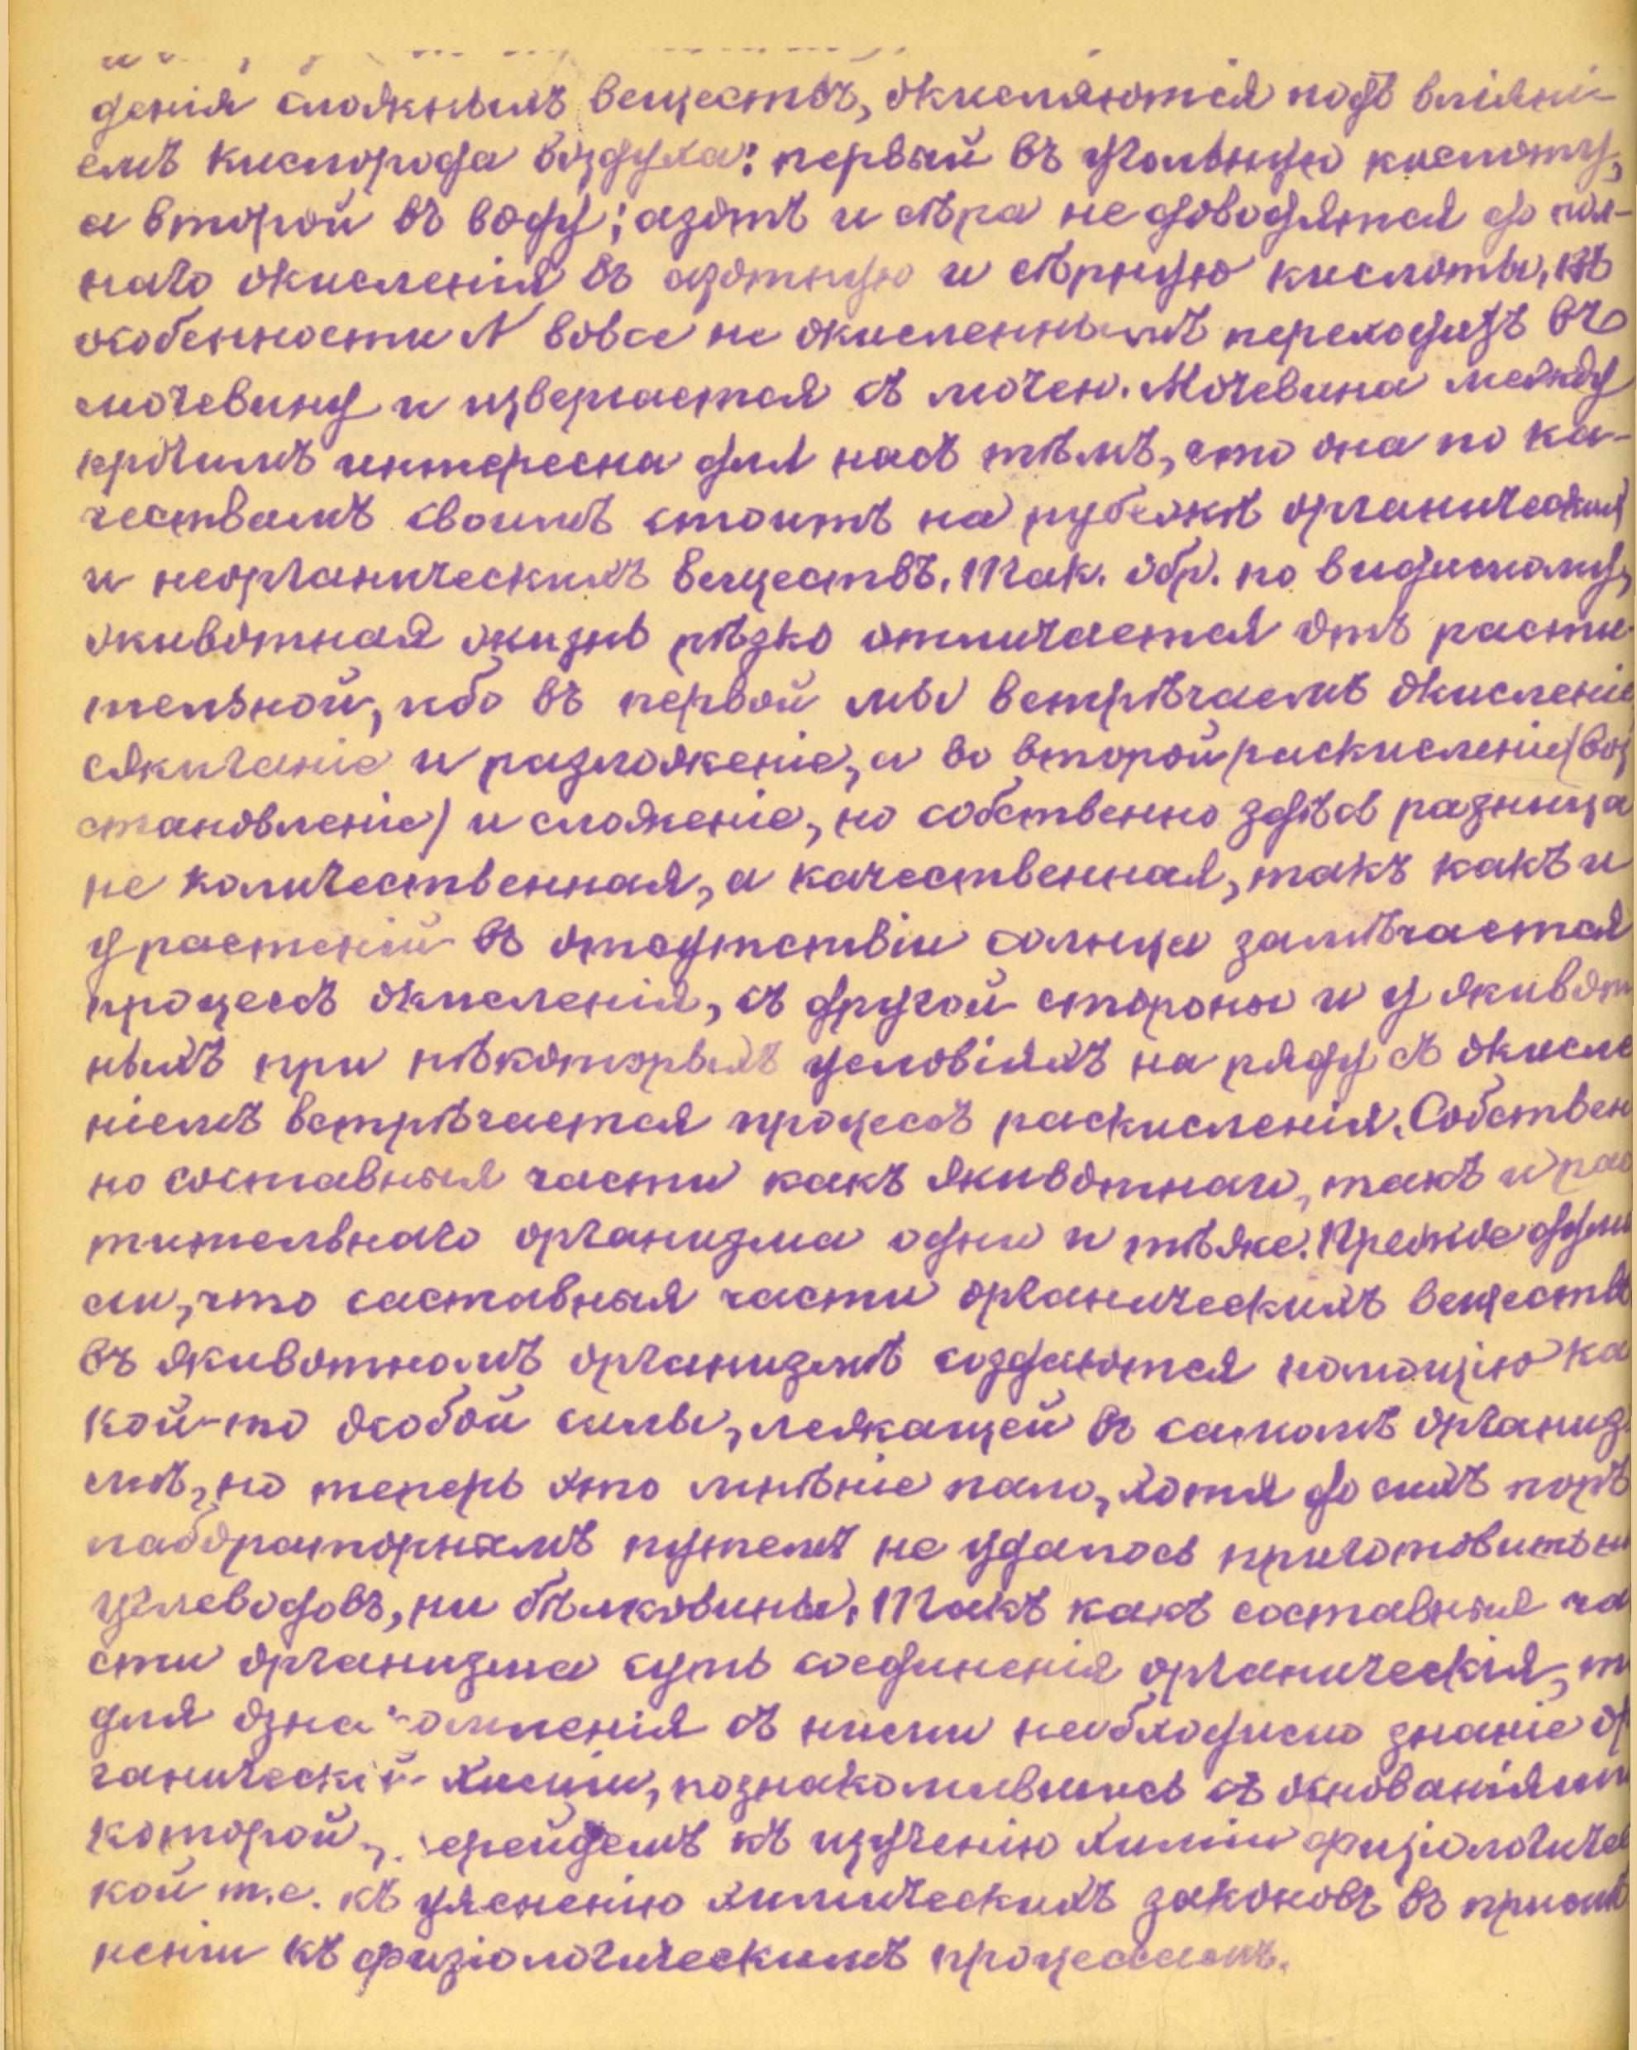 денія сложныхъ веществъ, окисляются подъ вліяні-
емъ кислорода воздуха: первый въ угольную кислоту,
а второй въ воду; азотъ и сѣра не доводятся до пол-
наго окисленія въ азотную и сѣрную кислоты, въ
особенности N вовсе не окисленнымъ переходитъ въ
мочевину и извергается съ мочею. Мочевина между
прочимъ интересна для насъ тѣмъ, что она по ка-
чествамъ своимъ стоитъ на рубежѣ органических
и неорганическихъ веществъ. Так. обр. по видимому,
животная жизнь рѣзко отличается отъ расти-
тельной, ибо въ первой мы встрѣчаемъ окисленіе
сжиганіе и разложеніе, а во второй раскисленіе (воз
становленіе) и сложеніе, но собственно здѣсь разница
не количественная, а качественная, такъ какъ и
у растеній въ отсутствіи солнца замѣчается
процессъ окисленія, съ другой стороны и у живот
ныхъ при нѣкоторыхъ условіяхъ на ряду съ окисле
ніемъ встрѣчается процессъ раскисленія. Собствен
но составныя части какъ животнаго, такъ и рас
тительнаго организма одни и тѣже. Прежде дума
ли, что составныя части органическихъ веществъ
въ животномъ организмѣ создаются помощію ка
кой-то особой силы, лежащей въ самомъ организ
мѣ, но теперь это мнѣніе пало, хотя до сихъ поръ
лабораторнымъ путемъ не удалось приготовить ни
углеводовъ, ни бѣлковины. Такъ какъ составныя ча
сти организма суть соединенія органическія, т
для озна омленія съ ними необходимо знаніе ор
ганической химіи, познакомившись съ основаніями
которой, ерейдемъ къ изученію химіи физіологичес
кой т.е. къ уясненію химическихъ законовъ въ примѣ
неніи къ физіологическимъ процессамъ.